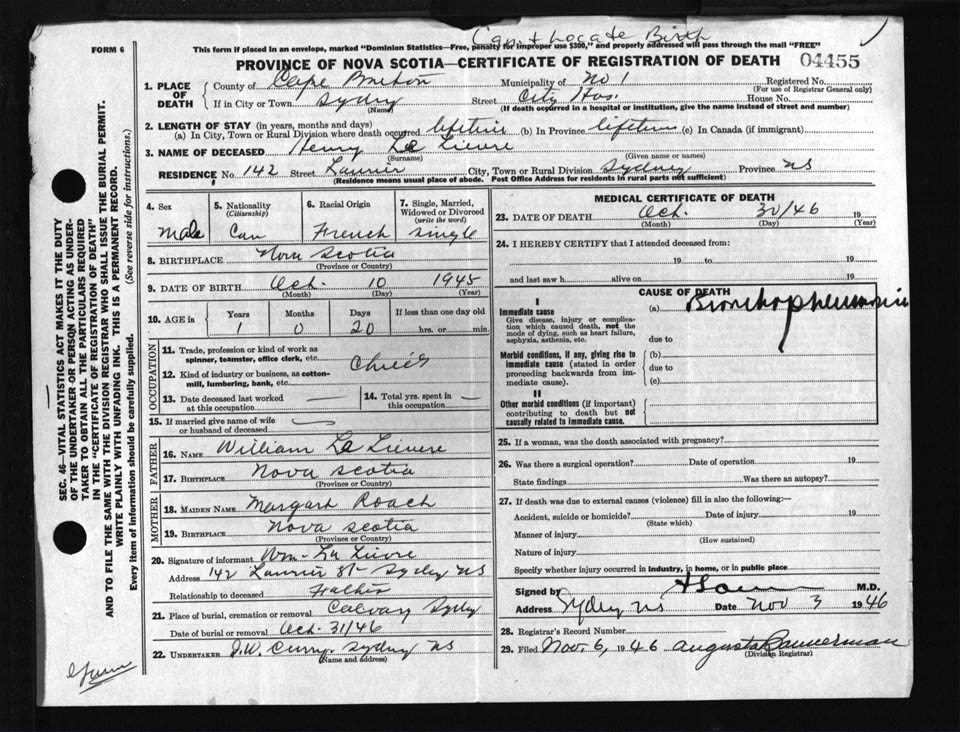 Can't Locate Birth
FORM 6
This form if placed in an envelope, marked "Dominion Statistics—Free, penalty for improper use $300," and properly addressed will pass through the mail "FREE"
PROVINCE OF NOVA SCOTIA—CERTIFICATE OF REGISTRATION OF DEATH 04455
1. PLACE OF DEATH
County of Cape Breton Municipality of No 1 Registered No.
(For use of Registrar General only)
If in City or Town Sydney Street City Hos. House No.
(Name) (If death occurred in a hospital or institution, give the name instead of street and number)
2. LENGTH OF STAY (in years, months and days)
(a) In City, Town or Rural Division where death occurred lifetime (b) In Province lifetime (c) In Canada (if immigrant)
3. NAME OF DECEASED Henry Le Lievre
(Surname) (Given name or names)
RESIDENCE No. 142 Street Laurier City, Town or Rural Division Sydney Province NS
(Residence means usual place of abode. Post Office Address for residents in rural parts not sufficient)
4. Sex
Male
5. Nationality
(Citizenship)
Can
6. Racial Origin
French
7. Single, Married, Widowed or Divorced
(write the word)
Single
8. BIRTHPLACE Nova Scotia
(Province or Country)
9. DATE OF BIRTH Oct. 10 1945
(Month) (Day) (Year)
10. AGE in
Years Months Days If less than one day old
1 0 20 hrs. or min.
OCCUPATION
11. Trade, profession or kind of work as
spinner, teamster, office clerk, etc.
Child
12. Kind of industry or business, as cotton-
mill, lumbering, bank, etc.
13. Date deceased last worked
at this occupation —
14. Total yrs. spent in
this occupation —
15. If married give name of wife
or husband of deceased —
FATHER
16. NAME William Le Lievre
17. BIRTHPLACE Nova Scotia
(Province or Country)
MOTHER
18. MAIDEN NAME Margaret Roach
19. BIRTHPLACE Nova Scotia
(Province or Country)
20. Signature of informant Wm. Le Lievre
Address 142 Laurier St Sydney NS
Relationship to deceased Father
21. Place of burial, cremation or removal Calvary Sydney
Date of burial or removal Oct. 31/46
22. UNDERTAKER J.W. Curry. Sydney NS
(Name and address)
MEDICAL CERTIFICATE OF DEATH
23. DATE OF DEATH Oct. 30/46 19
(Month) (Day) (Year)
24. I HEREBY CERTIFY that I attended deceased from:
19 to 19
and last saw h alive on 19
CAUSE OF DEATH
I
Immediate cause (a) Bronchopneumonia
Give disease, injury or complica-
tion which caused death, not the
mode of dying, such as heart failure,
asphyxia, asthenia, etc. due to
Morbid conditions, if any, giving rise to (b)
immediate cause (stated in order due to
proceeding backwards from im-
mediate cause). (c)
II
Other morbid conditions (if important)
contributing to death but not
causally related to immediate cause.
25. If a woman, was the death associated with pregnancy?
26. Was there a surgical operation? Date of operation 19
State findings Was there an autopsy?
27. If death was due to external causes (violence) fill in also the following:—
Accident, suicide or homicide? Date of injury 19
(State which)
Manner of injury
(How sustained)
Nature of injury
Specify whether injury occurred in industry, in home, or in public place
Signed by M.D.
Address Sydney NS Date Nov 3 1946
28. Registrar's Record Number
29. Filed Nov. 6, 1946 Augusta Bannerman
(Division Registrar)
SEC. 46—VITAL STATISTICS ACT MAKES IT THE DUTY
OF THE UNDERTAKER OR PERSON ACTING AS UNDER-
TAKER TO OBTAIN ALL THE PARTICULARS REQUIRED
IN THE "CERTIFICATE OF REGISTRATION OF DEATH"
AND TO FILE THE SAME WITH THE DIVISION REGISTRAR WHO SHALL ISSUE THE BURIAL PERMIT.
WRITE PLAINLY WITH UNFADING INK. THIS IS A PERMANENT RECORD.
Every item of information should be carefully supplied. (See reverse side for instructions.)